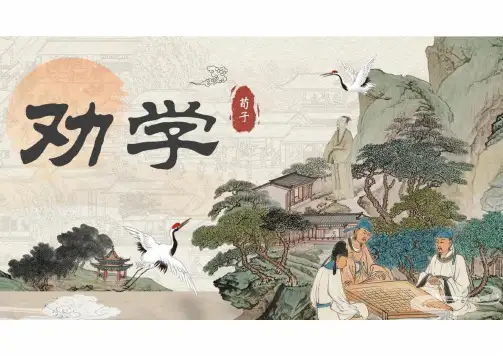 劝学
荀子